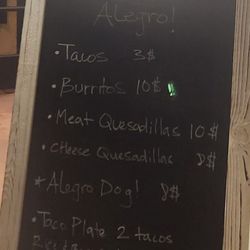 Alegro!
• Tacos 3$
• Burritos 10$
• Meat Quesadillas 10$
• Cheese Quesadillas 8$
* Alegro Dog! 8$
• Taco Plate 2 tacos